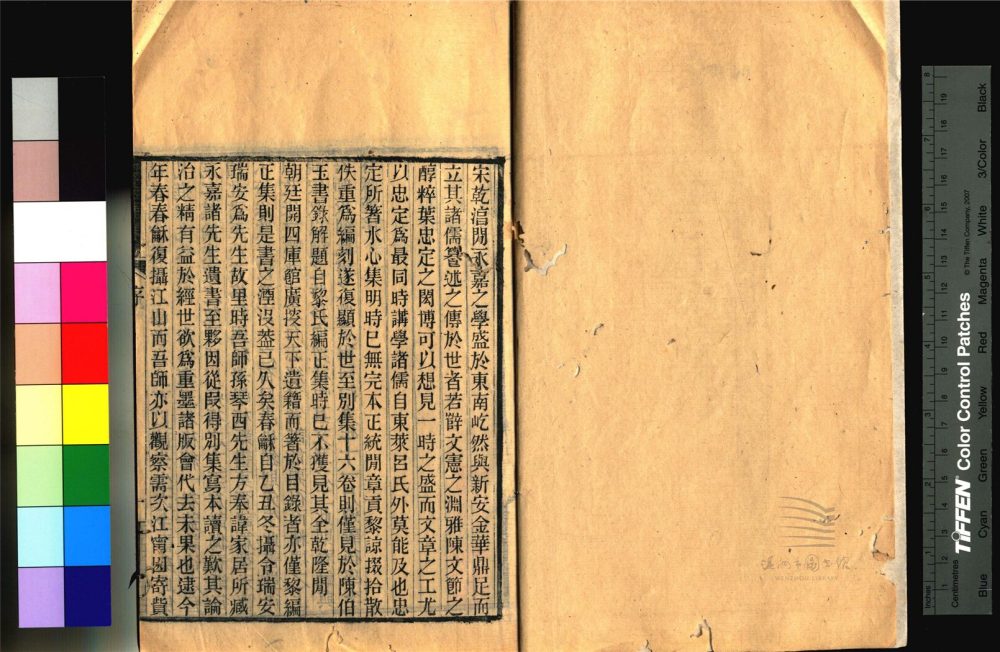 宋乾淳閒永嘉之學盛於東南屹然與新安金華鼎足而
立其諸儒譔述之傳於世者若薛文憲之淵雅陳文節之
醇粹葉忠定之閎博可以想見一時之盛而文章之工尤
以忠定爲最同時講學諸儒自東萊呂氏外莫能及也忠
定所著水心集明時已無完本正統閒章貢黎諒掇拾散
佚重爲編刻遂復顯於世至別集十六卷則僅見於陳伯
玉書錄解題自黎氏編正集時已不獲見其全乾隆閒
朝廷開四庫館廣搜天下遺籍而著於目錄者亦僅黎編
正集則是書之湮沒葢已久矣春龢自乙丑冬攝令瑞安
瑞安爲先生故里時吾師孫琴西先生方奉諱家居所臧
永嘉諸先生遺書至夥因從叚得別集寫本讀之歎其論
治之精有益於經世欲爲重墨諸版會代去未果也逮今
年春春龢復攝江山而吾師亦以觀察需次江甯圅寄貲
序
溫州市圖書館
WENZHOU LIBRARY
Inches
Centimetres
TIFFEN Color Control Patches
© The Tiffen Company, 2007
Blue
Cyan
Green
Yellow
Red
Magenta
White
3/Color
Black